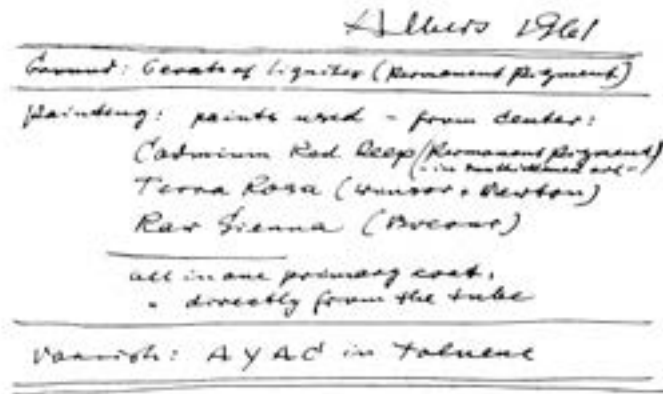 Albers 1961
Ground: 6 coats of Liquitex (Permanent Pigment)
Painting: paints used - from center:
Cadmium Red Deep (Permanent Pigment)
- in sunthickened oil -
Terra Rosa (Winsor + Newton)
Raw Sienna (Bocour)
all in one primary coat,
" directly from the tube
Varnish: AYAC in Toluene